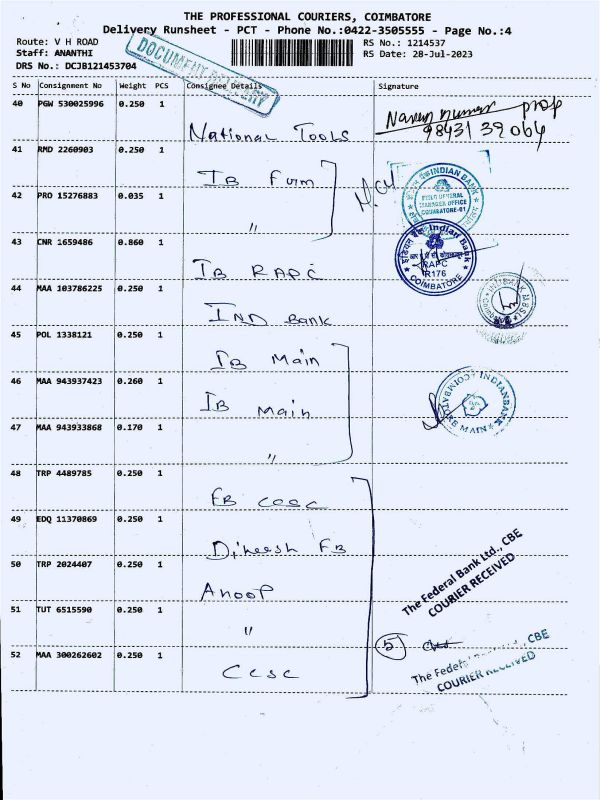 THE PROFESSIONAL COURIERS, COIMBATORE
Delivery Runsheet - PCT - Phone No.:0422-3505555 - Page No.:4
Route: V H ROAD RS No.: 1214537
Staff: ANANTHI RS Date: 28-Jul-2023
DRS No.: DCJB121453704
DOCUMENT DELIVERY
S No Consignment No Weight PCS Consignee Details Signature
40 PGW 530025996 0.250 1 National Tools
98431 39064
41 RMD 2260903 0.250 1 IB Fum
42 PRO 15276883 0.035 1 "
INDIAN BANK
FIELD GENERAL
MANAGER OFFICE
COIMBATORE-01
43 CNR 1659486 0.860 1 IB RAPC
Indian Bank
RAPC
R176
COIMBATORE
44 MAA 103786225 0.250 1 IND Bank
45 POL 1338121 0.250 1 IB Main
46 MAA 943937423 0.260 1 IB Main
INDIANBANK
COIMBATORE MAIN
47 MAA 943933868 0.170 1 "
48 TRP 4489785 0.250 1 FB CCSC
49 EDQ 11370869 0.250 1 Dineesh FB
50 TRP 2024407 0.250 1 Anoop
The Federal Bank Ltd., CBE
COURIER RECEIVED
51 TUT 6515590 0.250 1 "
5
52 MAA 300262602 0.250 1 CCSC
The Federal CBE
COURIER RECEIVED